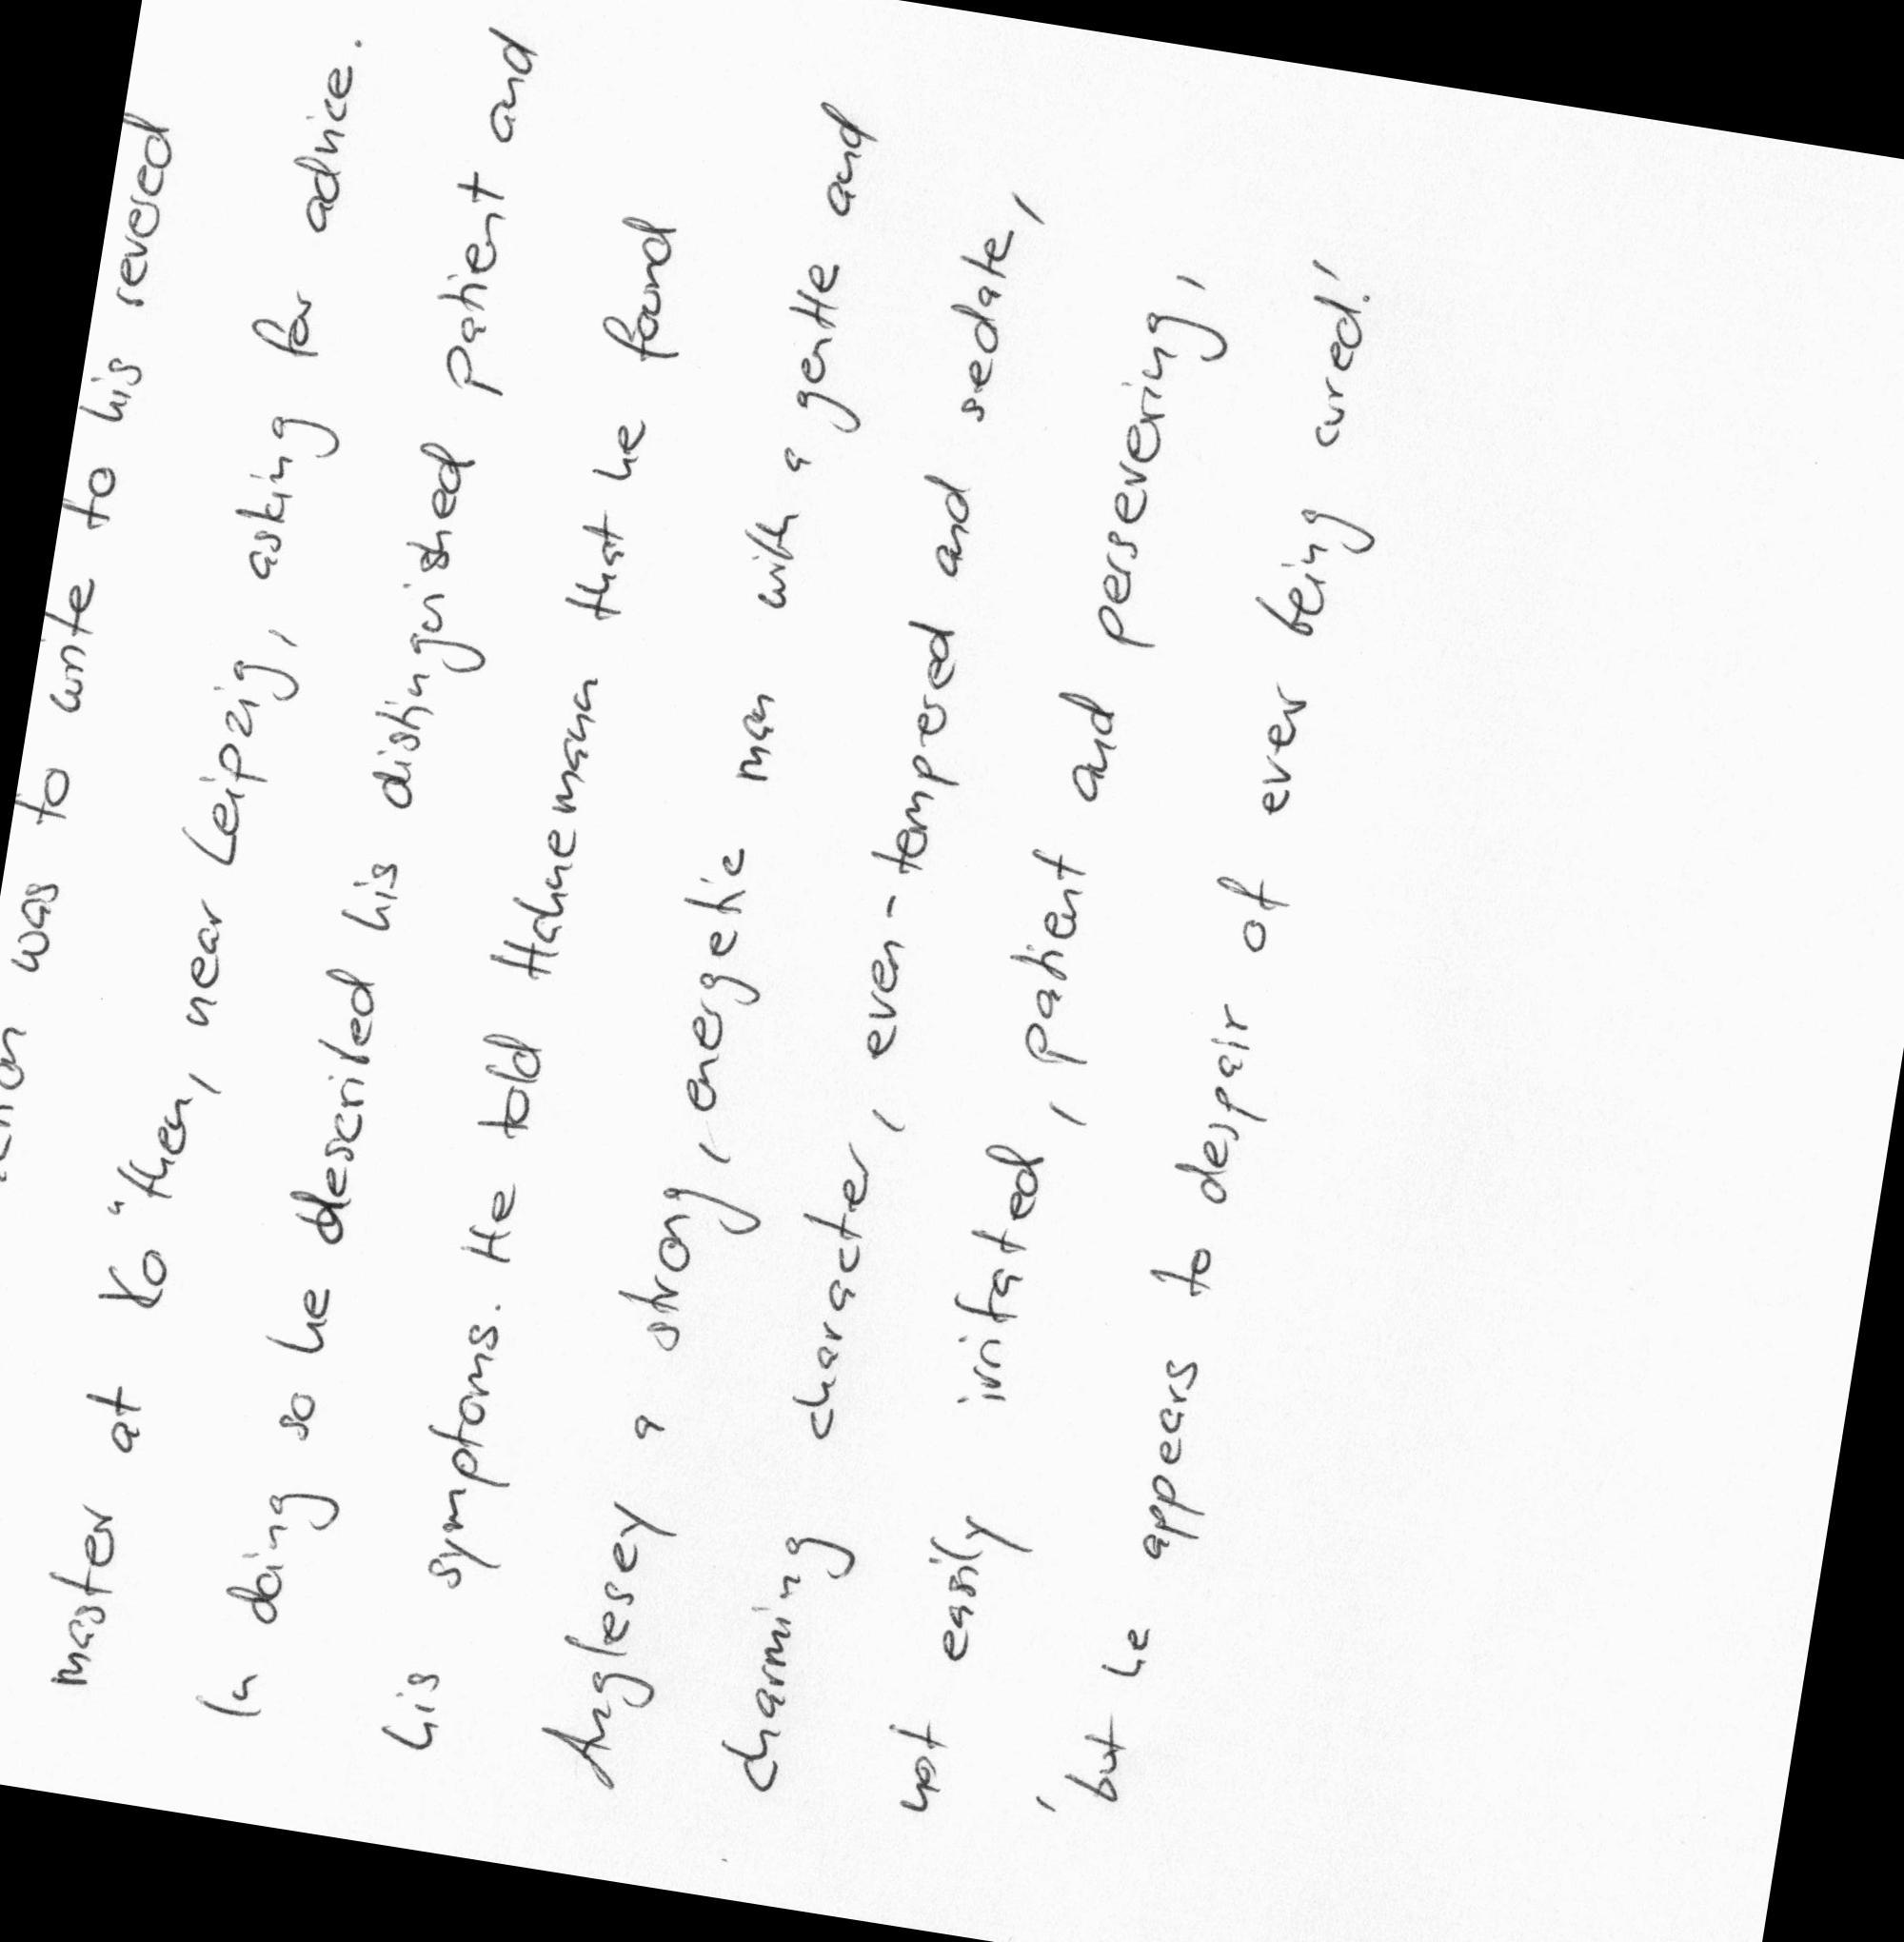 was to write to his revered
master at Ko"then, near Leipzig, asking for advice.
In doing so he described his distinguished patient and
his symptoms. He told Hahnemann that he found
Anglesey a strong, energetic man with a gentle and
charming character, even-tempered and sedate,
not easily irritated, patient and persevering,
'but he appears to despair of ever being cured.'